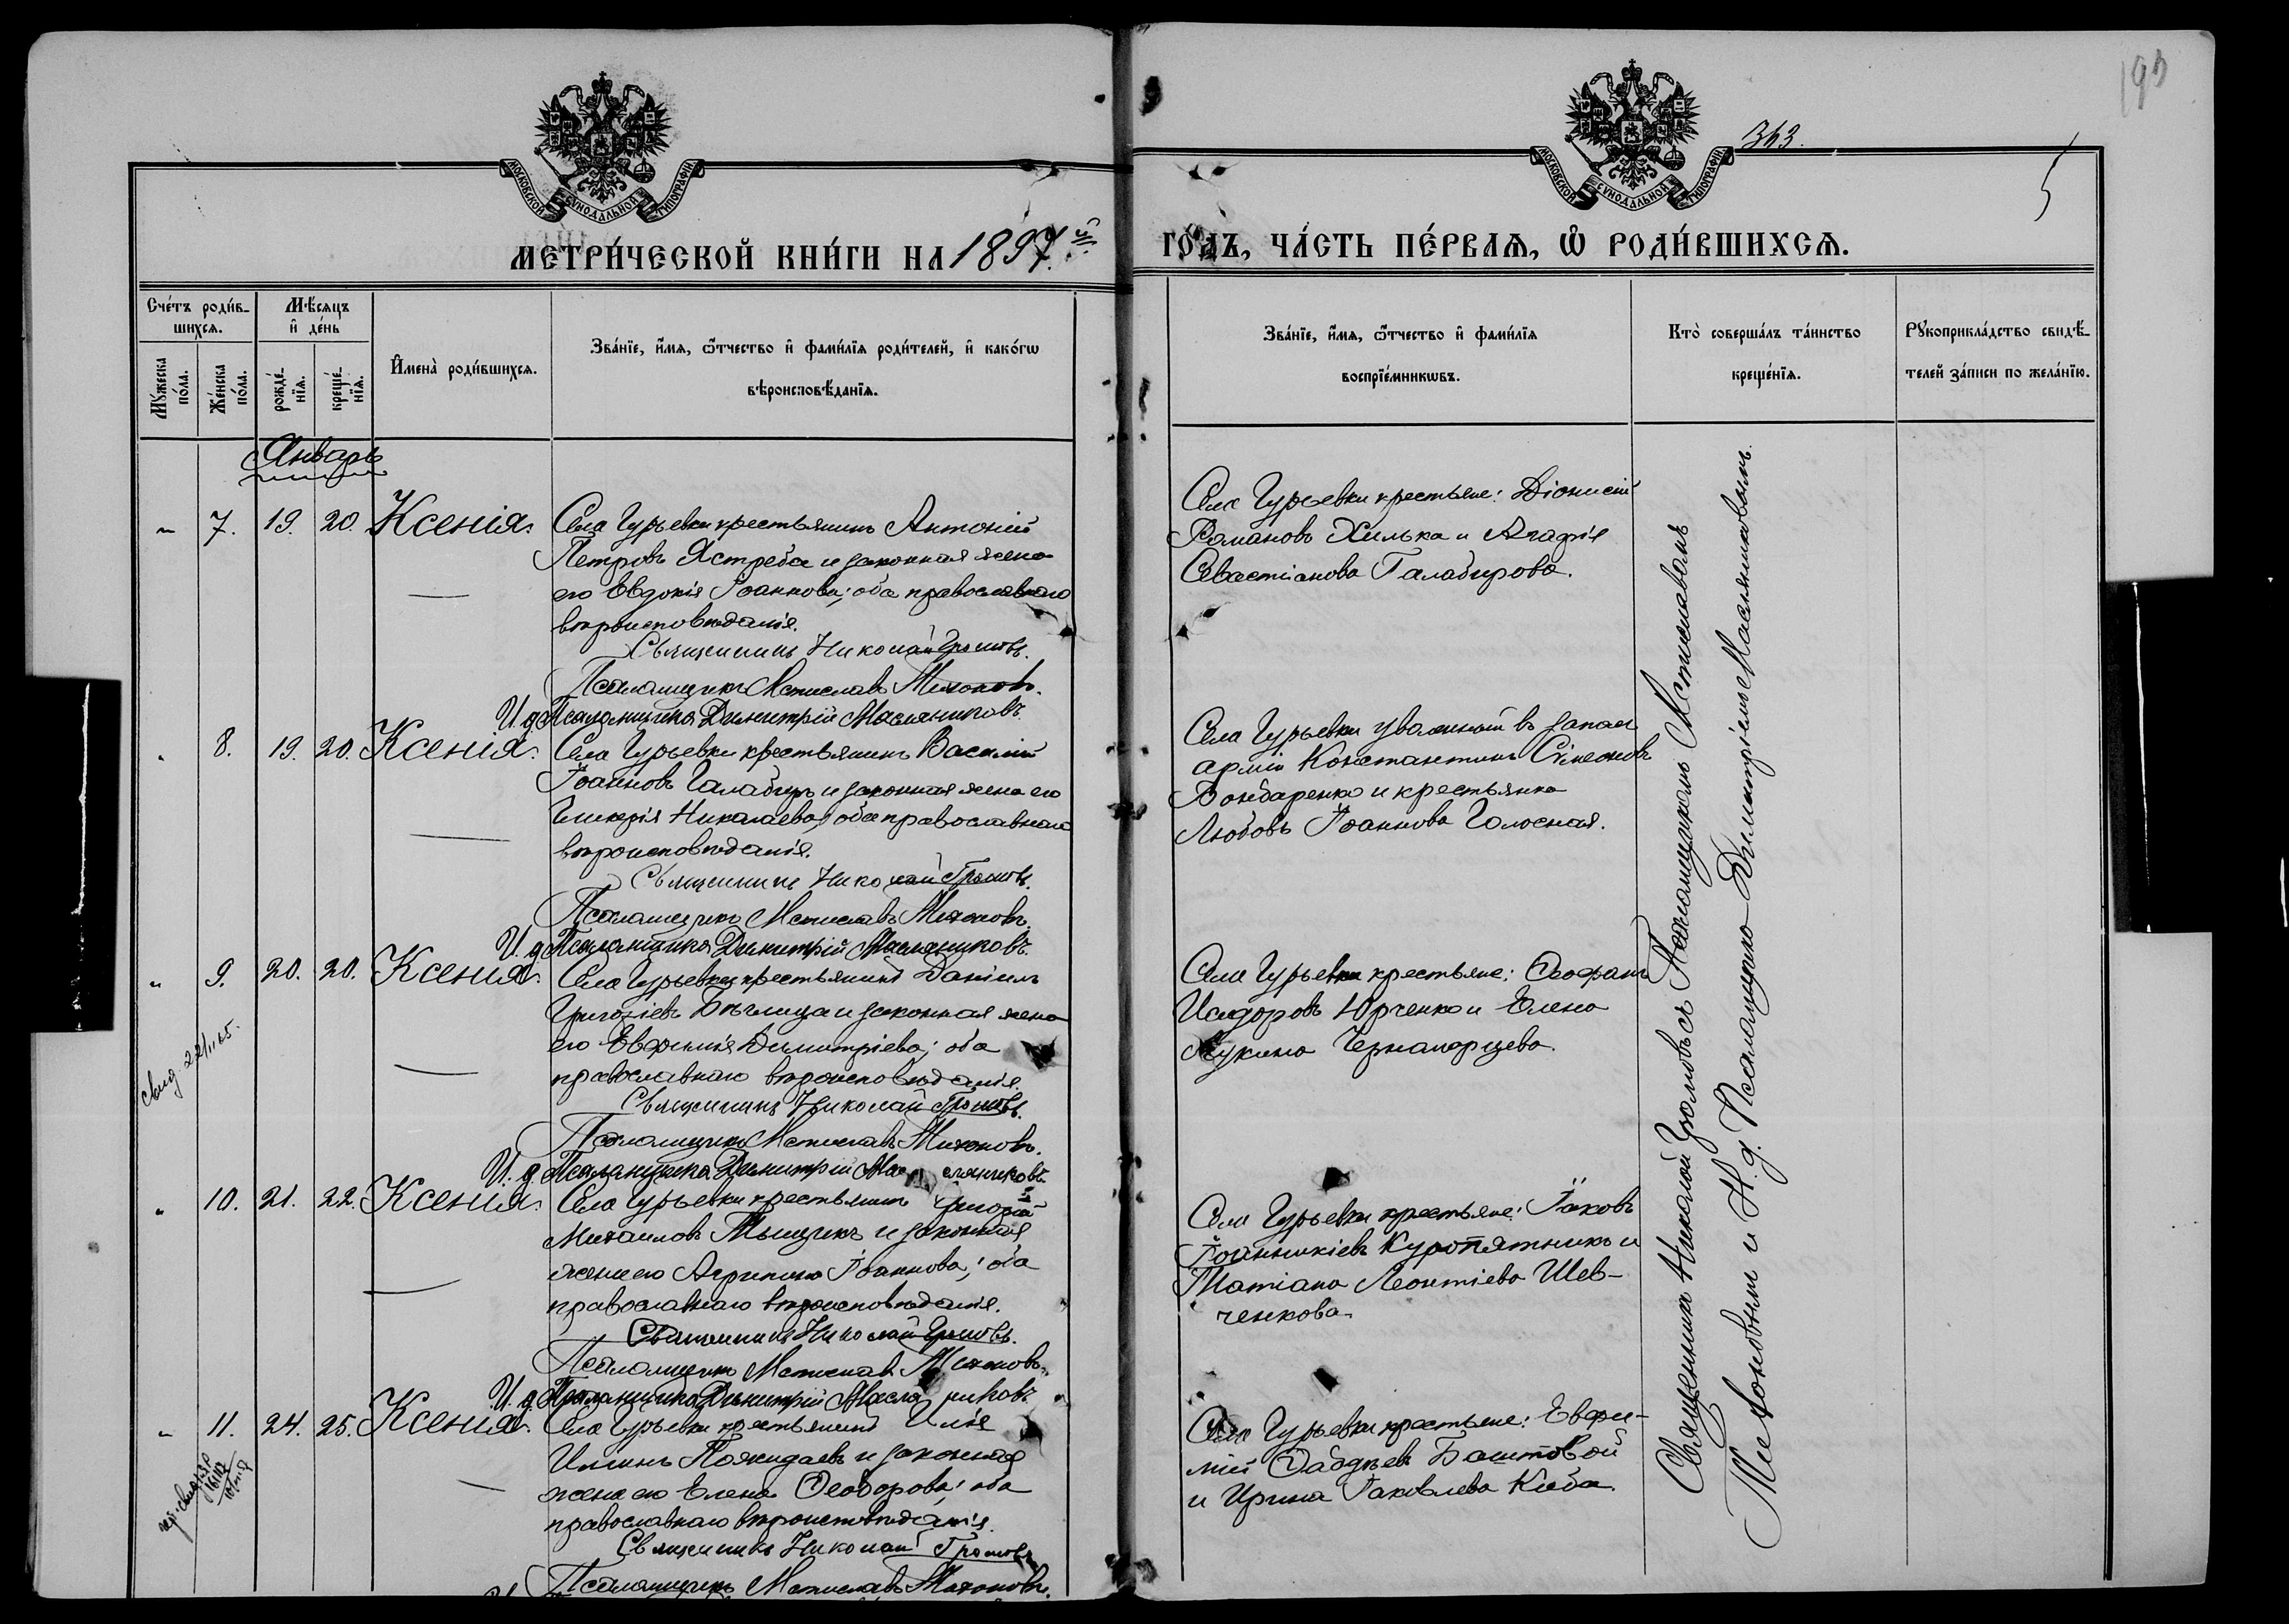 193
363.
5
МОСКОВСКОЙ СѴНОДАЛЬНОЙ ТИПОГРАФІИ
МОСКОВСКОЙ СѴНОДАЛЬНОЙ ТИПОГРАФІИ
МЕТРИ́ЧЕСКОЙ КНИ́ГИ НА 1897.й ГО́ДЪ, ЧА́СТЬ ПЕ́РВАѦ, Ѽ РОДИ́ВШИХСѦ.
Сче́тъ роди́в-
шихсѧ.
Мꙋ́жеска
по́ла.
Же́нска
по́ла.
Мѣ́сѧцъ
и҆ де́нь
рожде́-
нїѧ.
креще́-
нїѧ.
И҆мена̀ роди́вшихсѧ.
Зва́нїе, и҆́мѧ, ѻ҆́тчество и҆ фами́лїѧ роди́телей, и҆ како́гѡ
вѣроисповѣ́данїѧ.
Зва́нїе, и҆́мѧ, ѻ҆́тчество и҆ фами́лїѧ
воспрїе́мникѡвъ.
Кто̀ соверша́лъ та́инство
креще́нїѧ.
Рꙋкоприкла́дство свидѣ́-
телей за́писи по жела́нїю.
Январь
" 7. 19. 20. Ксенія.
Села Гурьевки крестьянинъ Антоній
Петровъ Ястреба и законная жена
его Евдокія Іоаннова; оба православнаго
вѣроисповѣданія.
Священникъ Николай Громовъ.
Псаломщикъ Мстиславъ Тихоновъ.
И. д. Псаломщика Димитрій Масляниковъ.
Села Гурьевки крестьяне: Діонисій
Романовъ Хилька и Агафія
Севастіанова Галабирова.
" 8. 19. 20. Ксенія.
Села Гурьевки крестьянинъ Василій
Іоанновъ Галабиръ и законная жена его
Гликерія Николаева; оба православнаго
вѣроисповѣданія.
Священникъ Николай Громовъ.
Псаломщикъ Мстиславъ Тихоновъ.
И. д. Псаломщика Димитрій Масляниковъ.
Села Гурьевки уволенный въ запасъ
арміи Константинъ Сімеоновъ
Бондаренко и крестьянка
Любовь Іоаннова Голосная.
" 9. 20. 20. Ксенія.
Села Гурьевки крестьянинъ Даніилъ
Григоріевъ Бѣлица и законная жена
его Евфимія Димитріева; оба
православнаго вѣроисповѣданія.
Священникъ Николай Громовъ.
Псаломщикъ Мстиславъ Тихоновъ.
И. д. Псаломщика Димитрій Масляниковъ.
Села Гурьевки крестьяне: Ѳеофанъ
Исидоровъ Юрченко и Елена
Лукина Черноморцева.
свид 22/11 65.
" 10. 21. 22. Ксенія.
Села Гурьевки крестьянинъ Григорій
Михаиловъ Тыщикъ и законная
жена его Агрипина Іоаннова; оба
православнаго вѣроисповѣданія.
Священникъ Николай Громовъ.
Псаломщикъ Мстиславъ Тихоновъ.
И. д. Псаломщика Димитрій Масляниковъ
Села Гурьевки крестьяне: Іаковъ
Іоанникіевъ Куропятникъ и
Татіана Леонтіева Шев-
ченкова.
" 11. 24. 25. Ксенія.
Села Гурьевки крестьянинъ Илія
Илиинъ Пожидаевъ и законная
жена его Елена Ѳеодорова; оба
православнаго вѣроисповѣданія.
Священникъ Николай Громовъ
Псаломщикъ Мстиславъ Тихоновъ.
Села Гурьевки крестьяне: Евфи-
мій Фаддѣевъ Баштовой
и Ирина Іаковлева Киба.
Священникъ Николай Громовъ съ Псаломщикомъ Мстиславомъ
Тихоновымъ и И. д. Псаломщика Димитріемъ Масляниковымъ.